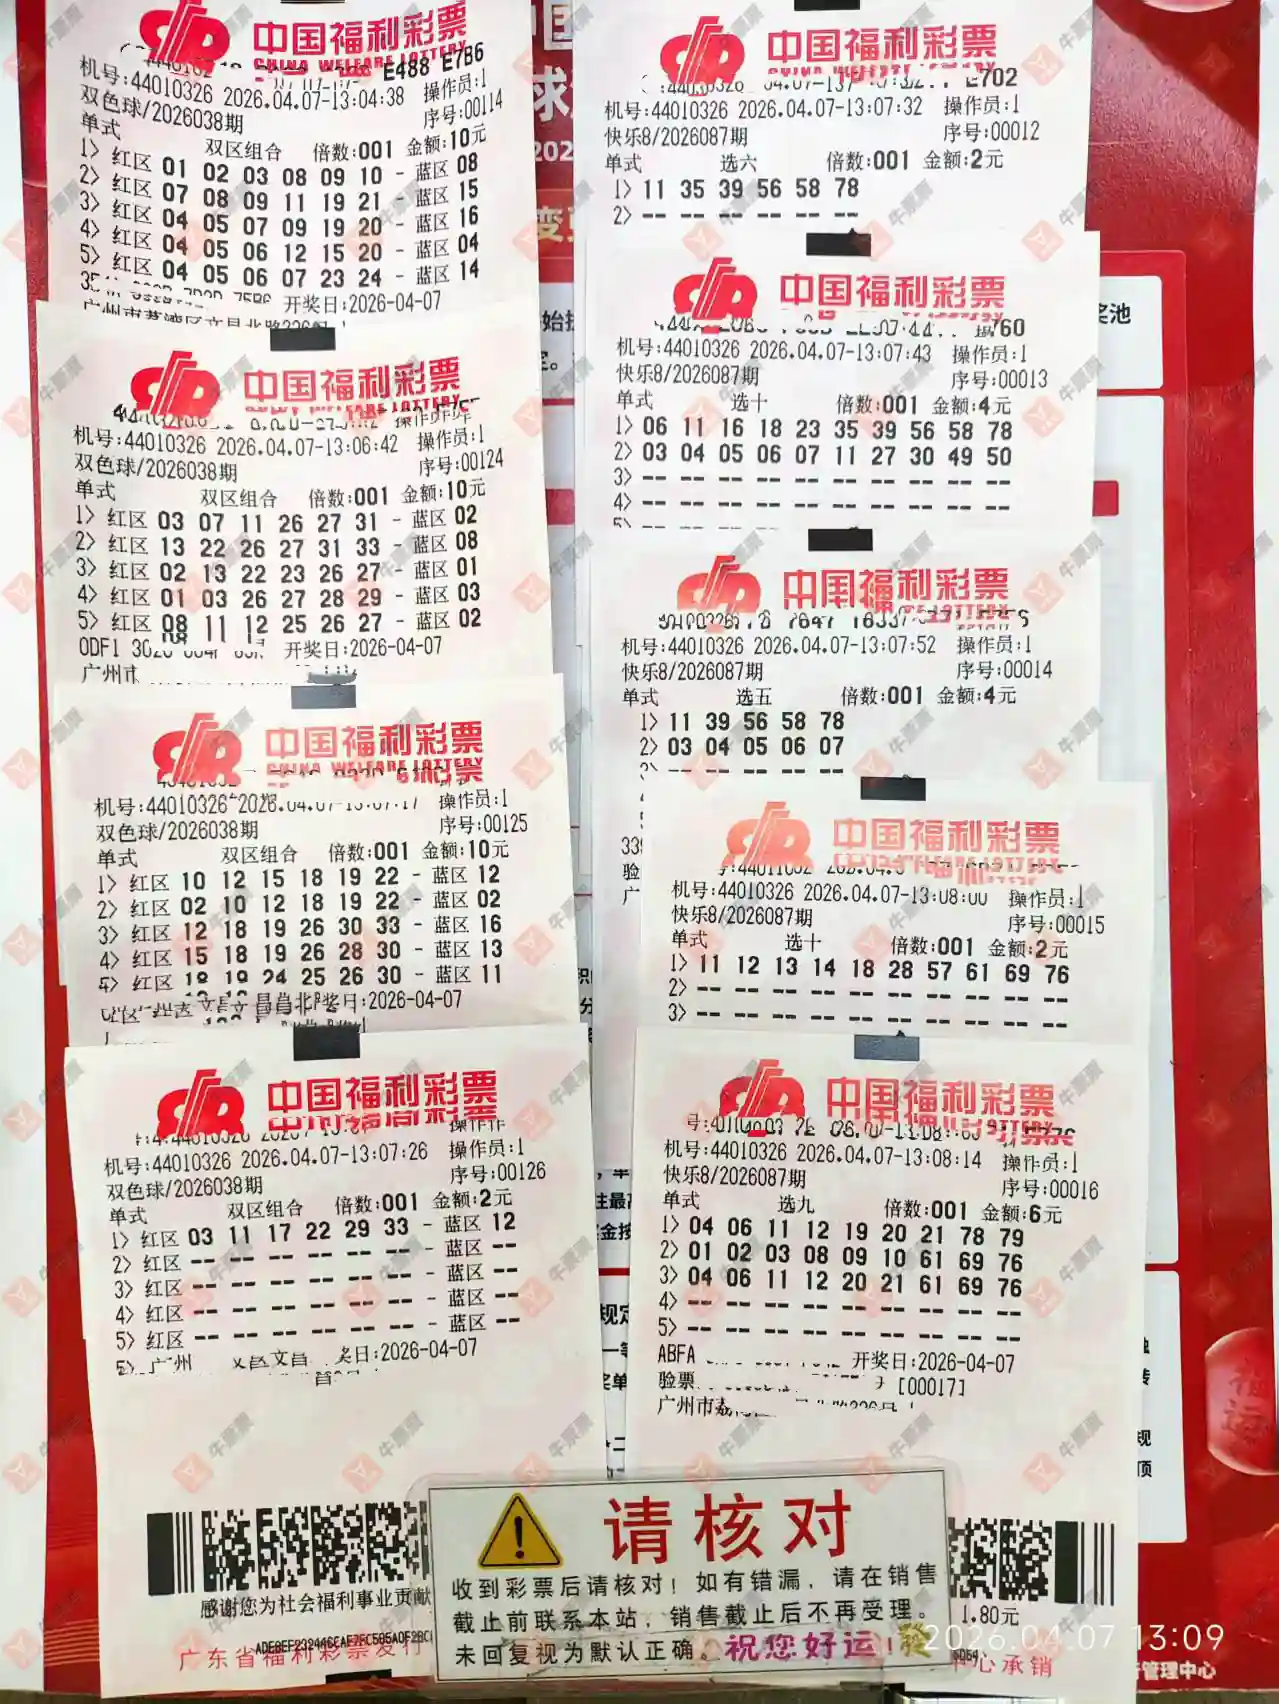 中国福利彩票
CHINA WELFARE LOTTERY
E488 E7B6
机号:44010326 2026.04.07-13:04:38 操作员:1
双色球/2026038期 序号:00114
单式 双区组合 倍数:001 金额:10元
1> 红区 01 02 03 08 09 10 - 蓝区 08
2> 红区 07 08 09 11 19 21 - 蓝区 15
3> 红区 04 05 07 09 19 20 - 蓝区 16
4> 红区 04 05 06 12 15 20 - 蓝区 04
5> 红区 04 05 06 07 23 24 - 蓝区 14
开奖日:2026-04-07
中国福利彩票
机号:44010326 2026.04.07-13:06:42 操作员:1
双色球/2026038期 序号:00124
单式 双区组合 倍数:001 金额:10元
1> 红区 03 07 11 26 27 31 - 蓝区 02
2> 红区 13 22 26 27 31 33 - 蓝区 08
3> 红区 02 13 22 23 26 27 - 蓝区 01
4> 红区 01 03 26 27 28 29 - 蓝区 03
5> 红区 08 11 12 25 26 27 - 蓝区 02
0DF1 开奖日:2026-04-07
广州市
中国福利彩票
CHINA WELFARE LOTTERY
机号:44010326 2026.04.07-13:07:17 操作员:1
双色球/2026038期 序号:00125
单式 双区组合 倍数:001 金额:10元
1> 红区 10 12 15 18 19 22 - 蓝区 12
2> 红区 02 10 12 18 19 22 - 蓝区 02
3> 红区 12 18 19 26 30 33 - 蓝区 16
4> 红区 15 18 19 26 28 30 - 蓝区 13
5> 红区 18 19 24 25 26 30 - 蓝区 11
奖日:2026-04-07
中国福利彩票
机号:44010326 2026.04.07-13:07:26 操作员:1
双色球/2026038期 序号:00126
单式 双区组合 倍数:001 金额:2元
1> 红区 03 11 17 22 29 33 - 蓝区 12
2> 红区 -- -- -- -- -- -- - 蓝区 --
3> 红区 -- -- -- -- -- -- - 蓝区 --
4> 红区 -- -- -- -- -- -- - 蓝区 --
5> 红区 -- -- -- -- -- -- - 蓝区 --
广州 文昌 奖日:2026-04-07
感谢您为社会福利事业贡献
广东省福利彩票发行
中国福利彩票
E702
机号:44010326 2026.04.07-13:07:32 操作员:1
快乐8/2026087期 序号:00012
单式 选六 倍数:001 金额:2元
1> 11 35 39 56 58 78
2> -- -- -- -- -- --
中国福利彩票
机号:44010326 2026.04.07-13:07:43 操作员:1
快乐8/2026087期 序号:00013
单式 选十 倍数:001 金额:4元
1> 06 11 16 18 23 35 39 56 58 78
2> 03 04 05 06 07 11 27 30 49 50
3> -- -- -- -- -- -- -- -- -- --
4> -- -- -- -- -- -- -- -- -- --
5>
中国福利彩票
机号:44010326 2026.04.07-13:07:52 操作员:1
快乐8/2026087期 序号:00014
单式 选五 倍数:001 金额:4元
1> 11 39 56 58 78
2> 03 04 05 06 07
-- -- -- -- --
中国福利彩票
机号:44010326 2026.04.07-13:08:00 操作员:1
快乐8/2026087期 序号:00015
单式 选十 倍数:001 金额:2元
1> 11 12 13 14 18 28 57 61 69 76
2> -- -- -- -- -- -- -- -- -- --
3> -- -- -- -- -- -- -- -- -- --
中国福利彩票
机号:44010326 2026.04.07-13:08:14 操作员:1
快乐8/2026087期 序号:00016
单式 选九 倍数:001 金额:6元
1> 04 06 11 12 19 20 21 78 79
2> 01 02 03 08 09 10 61 69 76
3> 04 06 11 12 20 21 61 69 76
4> -- -- -- -- -- -- -- -- --
5> -- -- -- -- -- -- -- -- --
ABFA 开奖日:2026-04-07
验票 [00017]
广州市
请核对
收到彩票后请核对！如有错漏，请在销售
截止前联系本站，销售截止后不再受理。
未回复视为默认正确。祝您好运！發
1.80元
中心承销
管理中心
奖池
福运
2026.04.07 13:09
牛票票